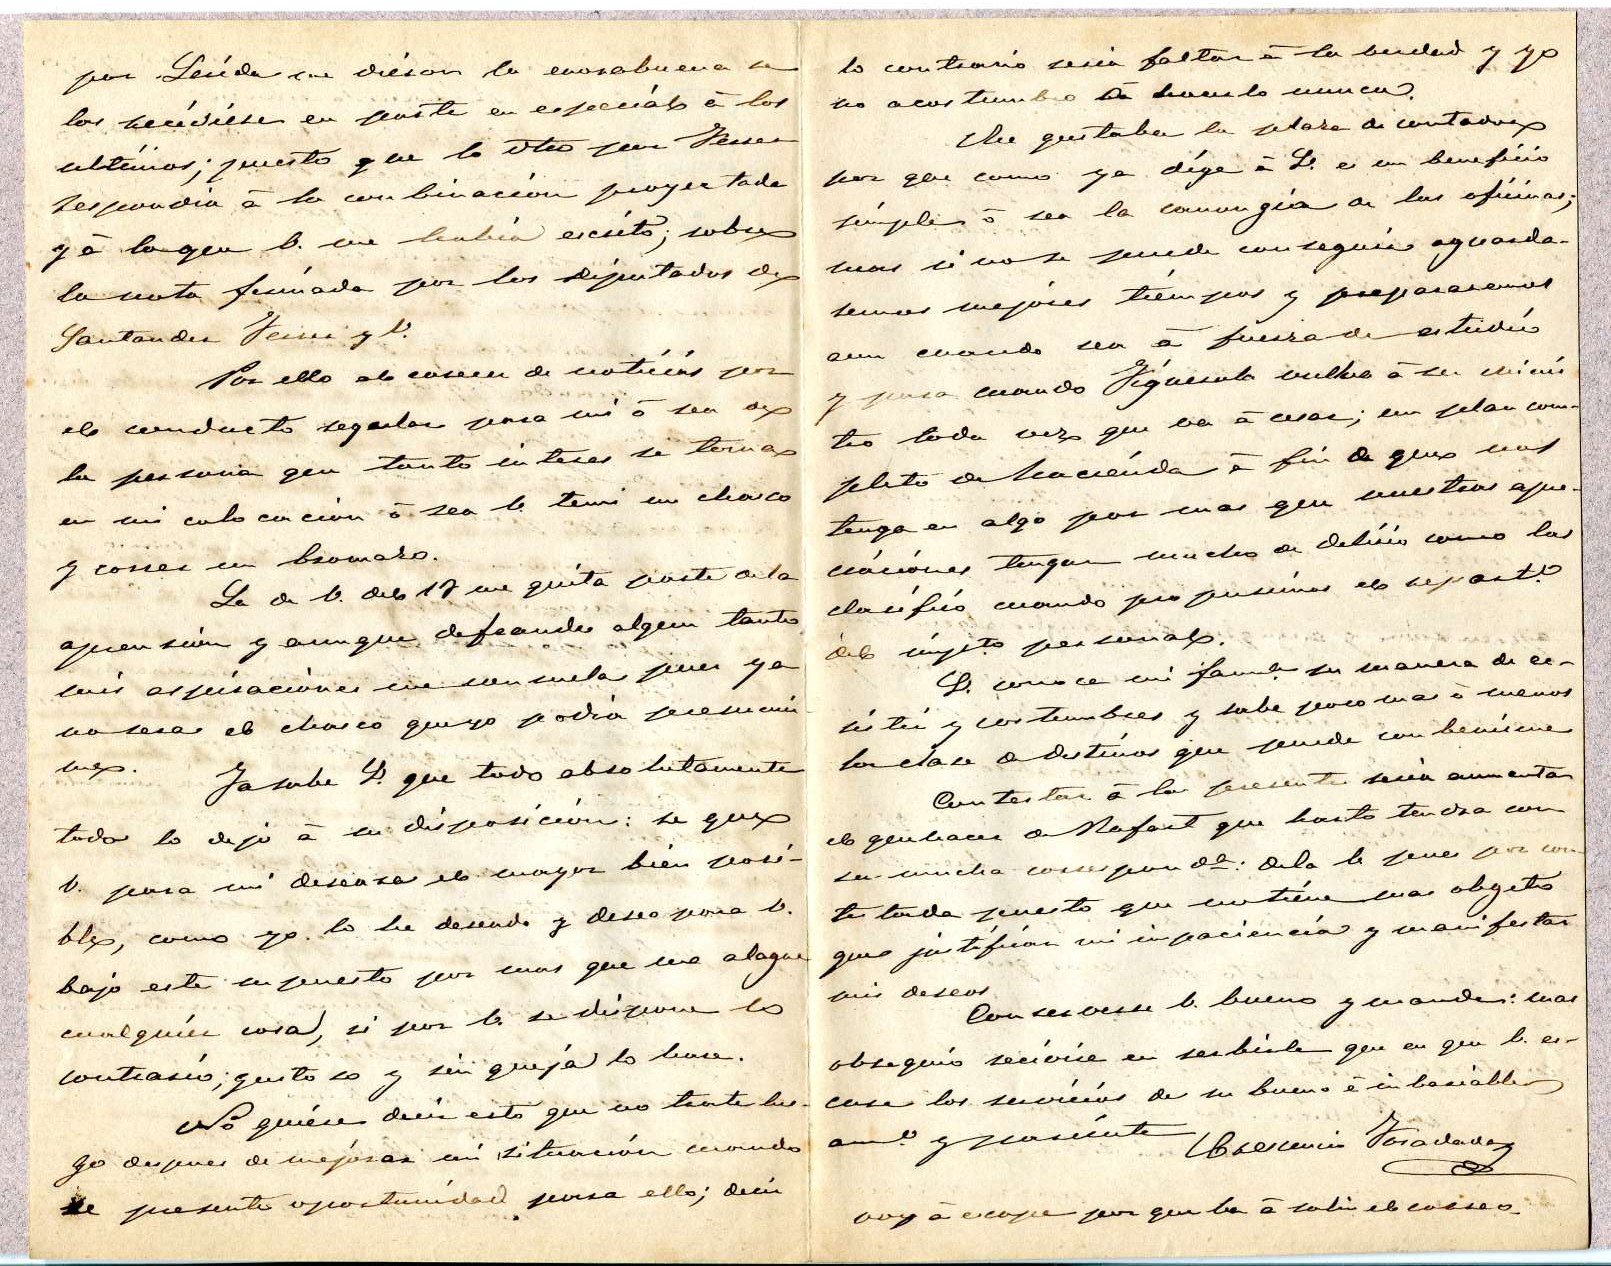 por Lérida me diéson la enorabuena se
los récidiése en parte en especiál à los
ultimos; puesto que lo otro por Ferrer
respondia à la combinacion proyectada
y à lo que V. me habia escrito; sobre
la nota firmada por los diputados de
Santander Ferrer y V.
Por ello al carecer de noticiás por
el conducto regular para mi ó sea de
la persona que tanto interes se toma
en mi colocacion ó sea V. temi un chasco
y correr un bromazo.
La de V. del 17 me quita parte de la
aprensión y aunque defraude algun tanto
mis aspiraciones me consuela pues ya
no sera el chasco que yo podia presumir
me.
Ya sabe V. que todo absolutamente
todo lo dejo à su disposición: se que
V. para mi deseara el mayor bien posi-
ble, como yo lo he deseado y deseo para V.
bajo este supuesto por mas que me alague
cualquiér cosa, si por V. se dispone lo
contrario; gustoso y sin queja lo hare.
No quiére decir esto que no trate lue-
go despues de mejórar mi situación cuando
se presente oportunidad para ello; decir
lo contrario seria faltar à la verdad y yo
no acostumbro à hacerlo nunca.
Me gustaba la plaza de contador
por que como ya dige à V. es un beneficio
simple ó sea la canongia de las oficinas;
mas si no se puede conseguir aguarda-
remos mejóres tiémpos y prepararemos
aun cuando sea à fuerza de estudio
y para cuando Figuerola vuelva à ser minis
tro toda vez que va à cesar; un plan com-
pleto de haciénda à fin de que nos
tenga en algo por mas que nuestras apre-
ciaciónes tengan mucho de delirio como las
clasificó cuando propusimos el repart.º
del impto personal.
V. conoce mi fam.ª su manera de ec-
sistir y costumbres y sabe poco mas ó menos
la clase de destinos que puede conbenirme
Contestar à la presente seria aumentar
el quehacer de Rafael que harto tendra con
su mucha correspond.ª: dela V. pues por con
testada puesto que no tiéne mas obgeto
que justificar mi impaciencia y manifestar
mis deseos.
Conservese V. bueno y mande: mas
obsequió recivire en serbirle que en que V. es-
cuse los servicios de su bueno é inbariable
am.º y pariénte
Crescencio Posadas
voy à escape por que va à salir el correo.